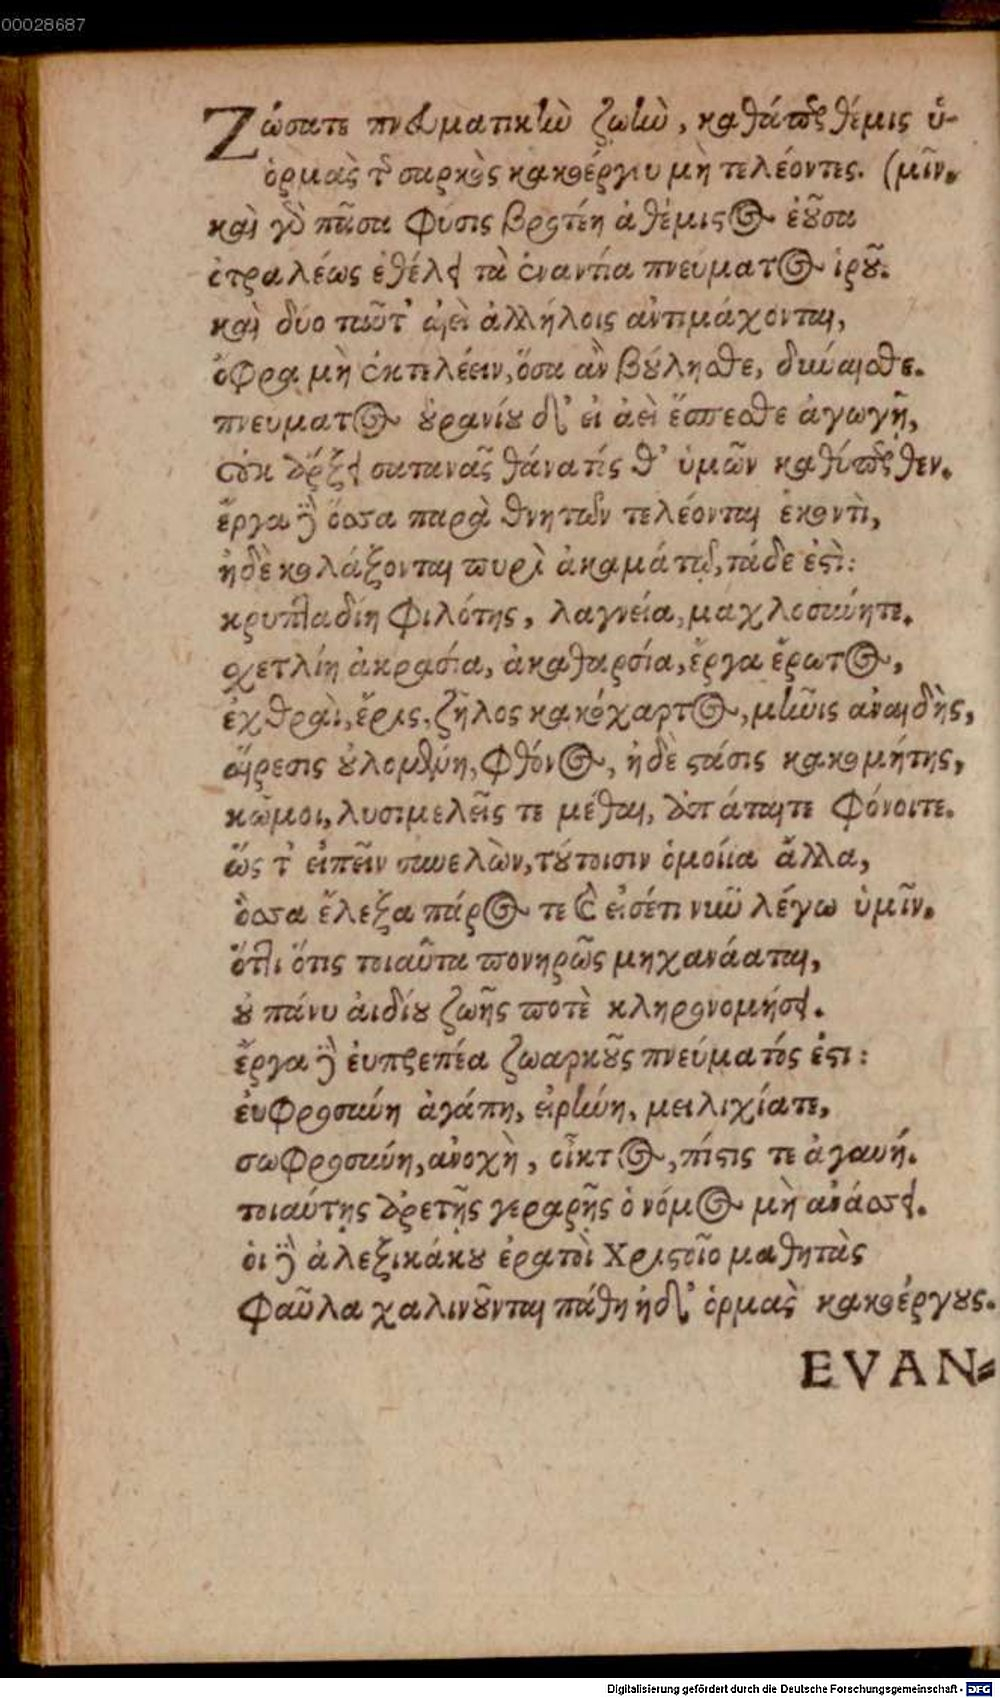 00028687
Ζώσατε πνευματικὴν ζωὴν, καθάπερ θέμις ὑ-
ὁρμὰς τῆς σαρκὸς κακοέργου μὴ τελέοντες. (μῖν.
καὶ γὰρ πᾶσα φύσις βροτέη ἀθέμιστος ἐοῦσα
ἀτραλέως ἐθέλει τὰ ἐναντία πνεύματος ἱροῦ.
καὶ δύο ταῦτ' αἰεὶ ἀλλήλοις ἀντιμάχονται,
ὄφρα μὴ ἐκτελέειν, ὅσα ἂν βούλησθε, δύναισθε.
πνεύματος οὐρανίου δ' εἰ ἀεὶ ἕσπεσθε ἀγωγῇ,
οὐκ ἄρξει σατανᾶς θάνατός θ' ὑμῶν
ἔργα δὲ ὅσσα παρὰ θνητῶν τελέονται ἑκοντὶ,
ἠδὲ κολάζονται πυρὶ ἀκαμάτῳ, τάδε ἐστί:
κρυπταδίη φιλότης, λαγνεία, μαχλοσύνητε.
σχετλίη ἀκρασία, ἀκαθαρσία, ἔργα ἔρωτος,
ἐχθραὶ, ἔρις, ζῆλος κακόχαρτος, μῆνις ἀναιδὴς,
αἵρεσις οὐλομένη, φθόνος, ἠδὲ στάσις κακομήτης,
κῶμοι, λυσιμελεῖς τε μέθαι, ἀπάταιτε φόνοιτε.
ὥς τ' εἰπεῖν συνελὼν, τούτοισιν ὁμοίια ἄλλα,
ὅσσα ἔλεξα πάρος τε καὶ εἰσέτι νῦν λέγω ὑμῖν.
ὅττι ὅστις τοιαῦτα πονηρῶς μηχανάαται,
οὐ πάνυ ἀιδίου ζωῆς ποτὲ κληρονομήσει.
ἔργα δὲ ἐυπρεπέα ζωαρκοῦς πνεύματός ἐστι:
ἐυφροσύνη ἀγάπη, εἰρήνη, μειλιχίατε,
σωφροσύνη, ἀνοχὴ, οἶκτος, πίστις τε ἀγαυή.
τοιαύτης ἀρετῆς γεραρῆς ὁ νόμος μὴ ἀνάσσει.
οἱ δὲ ἀλεξικάκου ἐρατοὶ Χριστοῖο μαθητὰς
φαῦλα χαλινοῦνται πάθη ἠδ' ὁρμὰς κακοέργους.
EVAN-
Digitalisierung gefördert durch die Deutsche Forschungsgemeinschaft - DFG